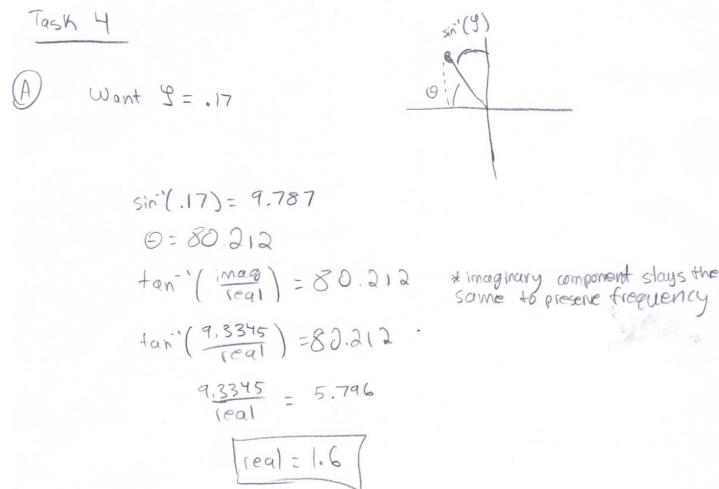 Task 4
sin⁻¹(ζ)
θ
A Want ζ = .17
sin⁻¹(.17) = 9.787
θ = 80.212
tan⁻¹(imag/real) = 80.212 * imaginary component stays the
same to preserve frequency
tan⁻¹(9.3345/real) = 80.212
9.3345/real = 5.796
real = 1.6